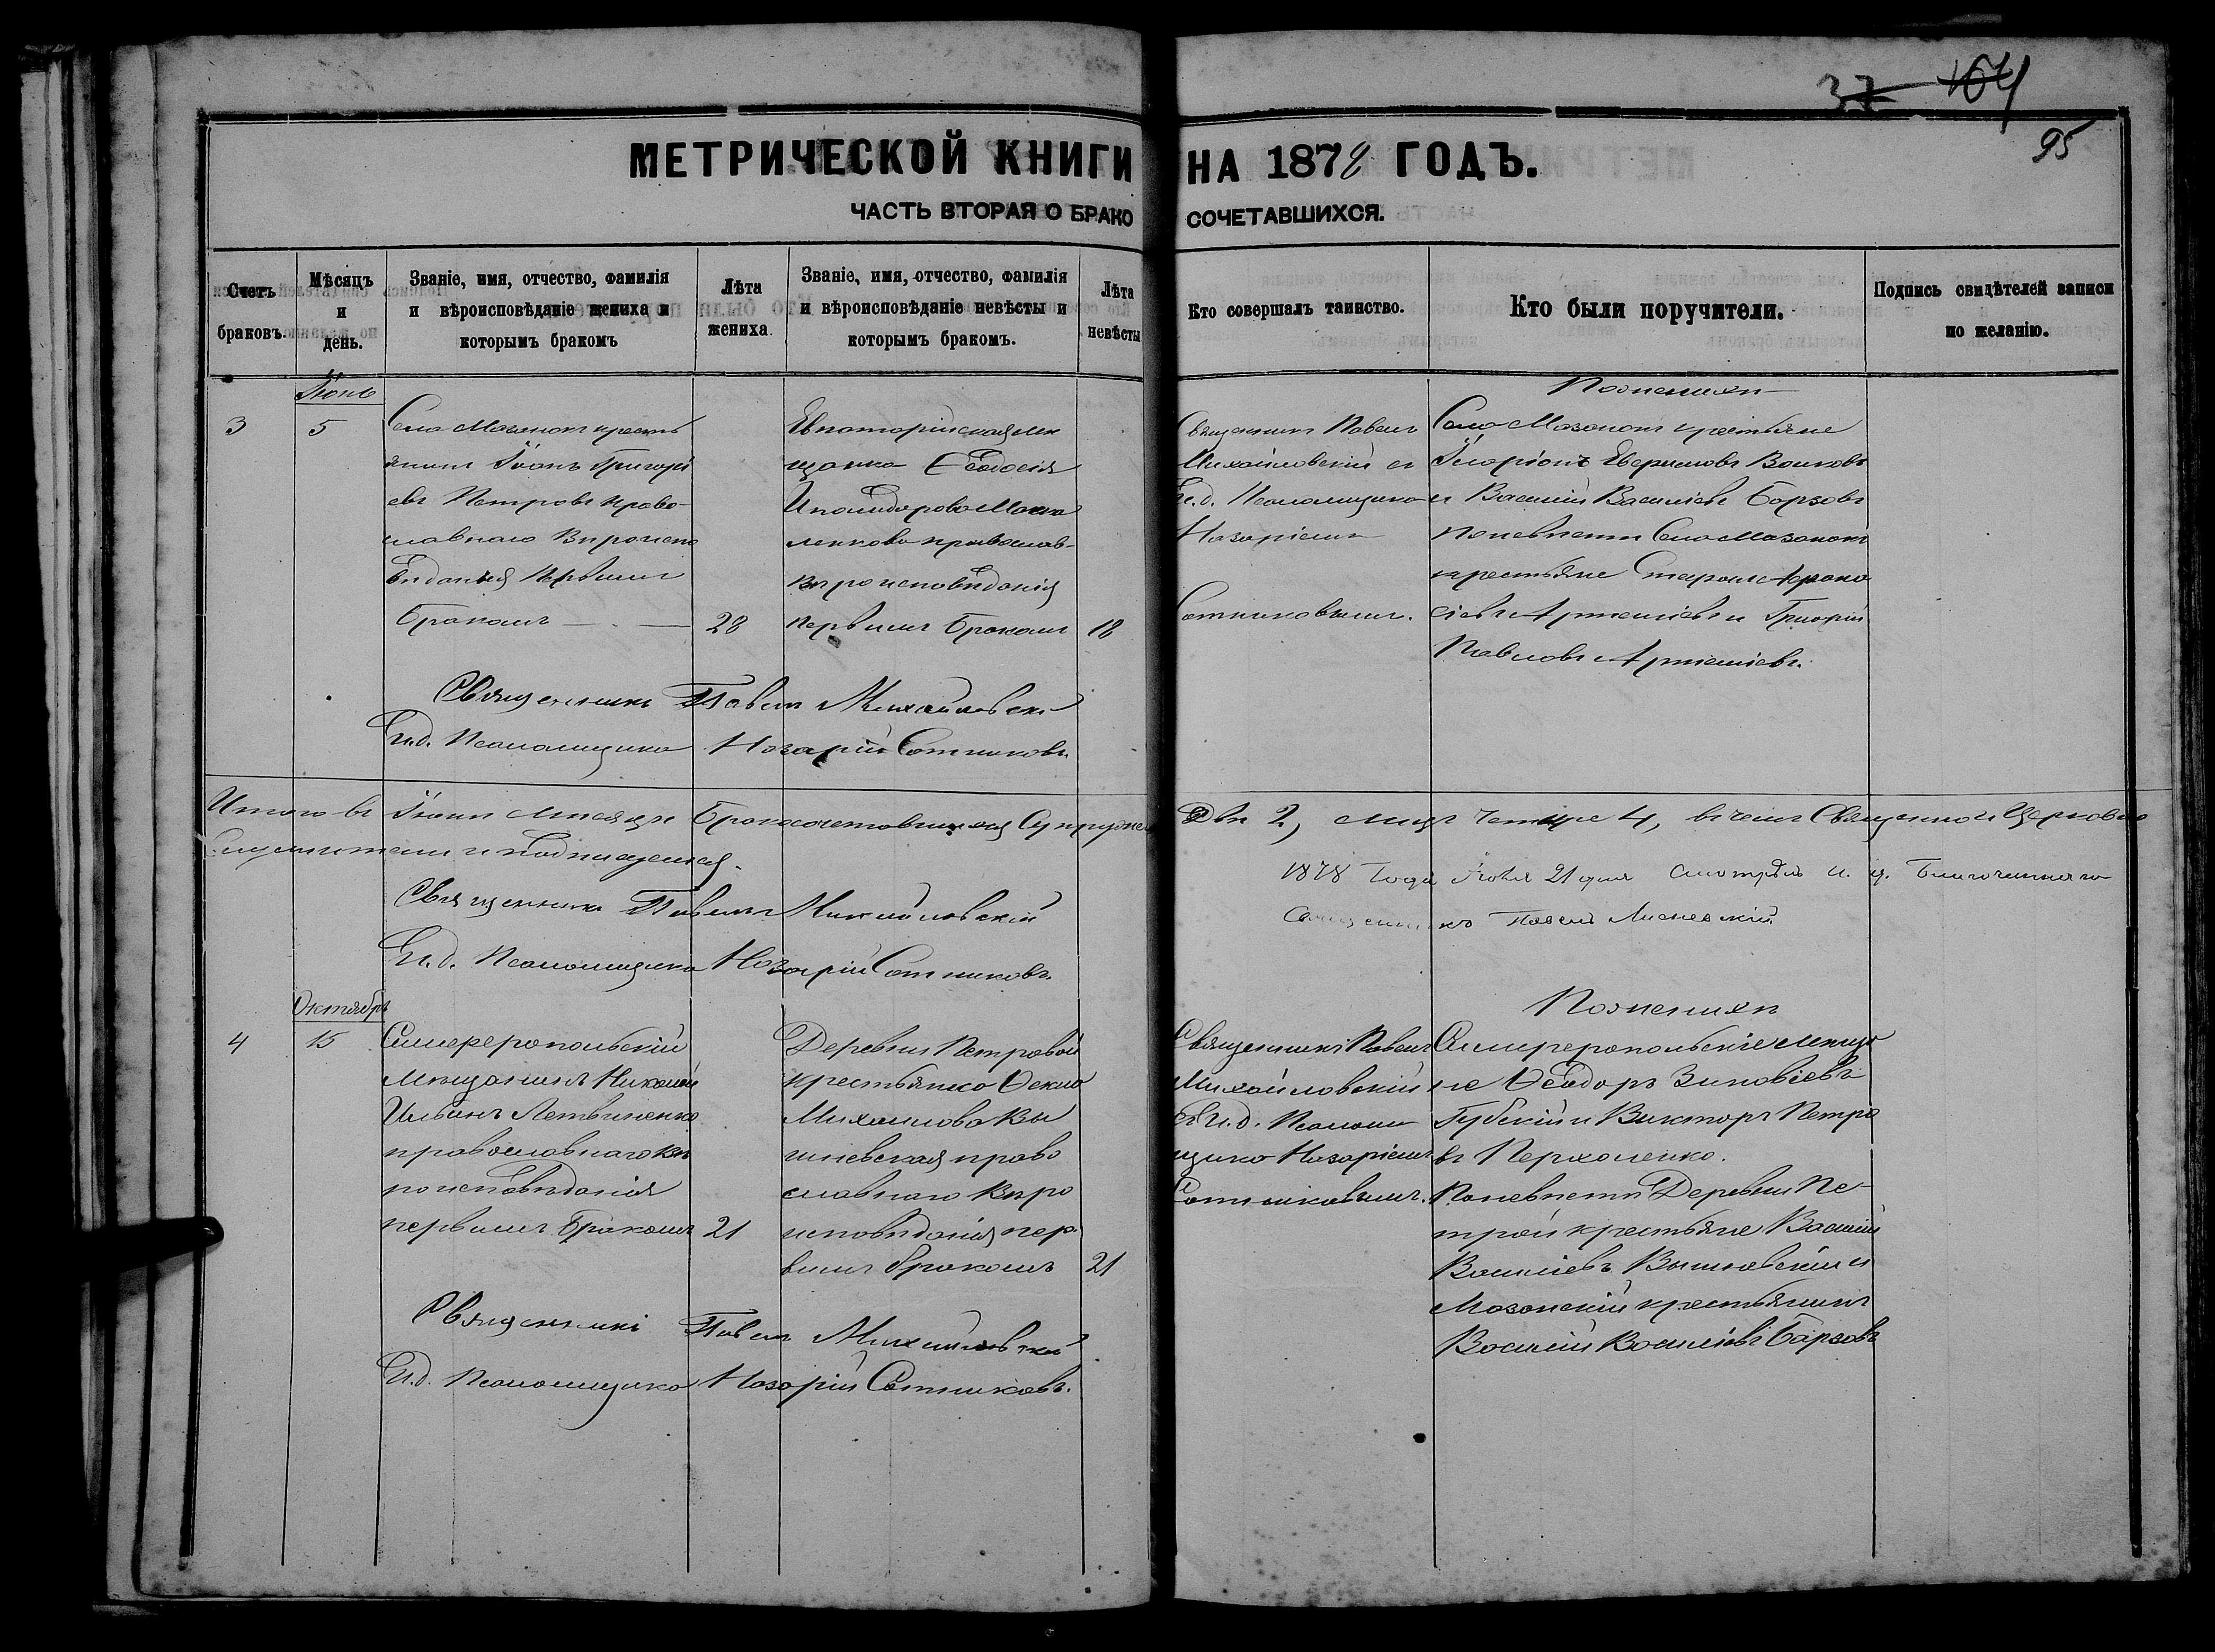 37 164
95
МЕТРИЧЕСКОЙ КНИГИ НА 1878 ГОДЪ.
ЧАСТЬ ВТОРАЯ О БРАКО СОЧЕТАВШИХСЯ.
Счетъ браковъ.
Мѣсяцъ и день.
Званіе, имя, отчество, фамилія и вѣроисповѣданіе жениха и которымъ бракомъ
Лѣта жениха.
Званіе, имя, отчество, фамилія и вѣроисповѣданіе невѣсты и которымъ бракомъ.
Лѣта невѣсты
Кто совершалъ таинство.
Кто были поручители.
Подпись свидѣтелей записи по желанію.
Іюнь
3
5
Села Мазанокъ кресть
янинъ Іоанъ Григорі
евъ Петровъ право-
славнаго Вѣроиспо
вѣданія Первымъ
Бракомъ
28
Евпаторійская мѣ
щанка Ѳеодосія
православ-
вѣроисповѣданія
первымъ Бракомъ
18
Священникъ Павелъ
Михайловскій съ
И.д. Псаломщика
Назаріемъ
Сотниковымъ.
По женихѣ
Села Мазанокъ крестьяне
Іларіонъ Волковъ
и Василій Васильевъ Борзовъ
По невѣстѣ Села Мазанокъ
крестьяне
Артемьевъ и Григорій
Павловъ Артемьевъ.
Священникъ Павелъ Михайловскій
И.д. Псаломщика Назарій Сотниковъ.
Итого въ Іюнѣ мѣсяцѣ Бракосочетавшихся Супруже
Двѣ 2, лицъ Четыре 4, въ чемъ Священно и Церковно
Служители и подписуемся.
1878 Года 21 дня смотрѣлъ и. д. Благочиннаго
Священникъ Павелъ
Священникъ Павелъ Михайловскій
И.д. Псаломщика Назарій Сотниковъ.
Октябрь
4
15
Симферопольскій
Мѣщанинъ Николай
Ильинъ Летвиненко
православнаго вѣ
роисповѣданія
первымъ Бракомъ
21
Деревни Петровой
крестьянка Ѳекла
Михаилова Вы
шневская право
славнаго Вѣро
исповѣданія пер
вымъ бракомъ
21
Священникъ Павелъ
Михайловскій
съ И.д. Псалом
щика Назаріемъ
Сотниковымъ.
По женихѣ
Симферопольскіе мѣща
не Ѳеодоръ Зиновіевъ
Губскій и Викторъ Петро
въ Перхоленко.
По невѣстѣ Деревни Пе-
трой крестьяне Василій
Васильевъ Вышневскій и
Мазанскій крестьянинъ
Василій Васильевъ Борзовъ
Священникъ Павелъ Михайловскій
И.д. Псаломщика Назарій Сотниковъ.